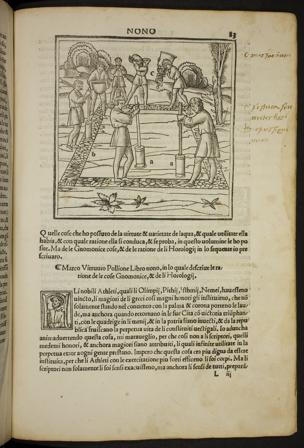 NONO 83
Quelle cose che ho possuto de la virtute & varietate de laqua, & quale utilitate ella
habia, & con quale ratione ella si conduca, & se proba, in questo volumine le ho po
ste. Ma de le Gnomonice cose, & de le ratione de li Horologij in lo sequente io per
scrivaro.
Marco Vitruuio Pollione Libro nono, in lo quale descrive le ra
tione de le cose Gnomonice, & de li Horologij.
Li nobili Athleti, quali li Olimpij, Pithij, Isthmij, Nemei, haveseno
vincto, li magiori de li greci cosi magni honori gli instituirno, che nō
solamente stando nel convento con la palma & corona porteno le lau
de, ma anchora quando retornano in le sue Cita cō victoria triūphan
ti, con le quadrige in li menij, & in la patria siano invecti, & da la repu
blica fruiscano la perpetua vita de li constituiti vectigali. Io aduncha
animadvertendo questa cosa, mi maraveglio, per che cosi non a li scriptori, quelli
medemi honori, & anchora magiori siano attribuiti, li quali infinite utilitate in la
perpetua etate a ogni gente prestano. Impero che questa cosa era piu digna da essere
instituita, per che li Athleti con le exercitatione piu forti efficeno li soi corpi. Ma li
scriptori non solamente li soi sensi exacuisseno, ma anchora li sensi de tutti, prepara
L iij